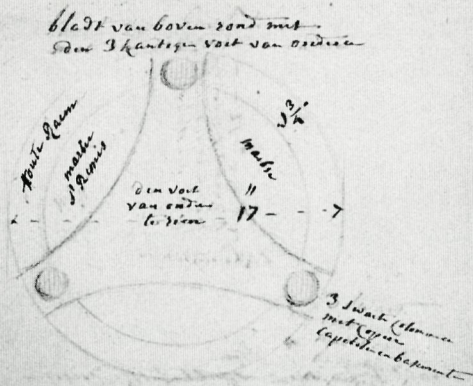 bladt van boven rond met
den 3 kantigen voet van onderen
houte Raem
marber
St Remis
3/4
marber
den voet
van onder
te sien
17
7
3 swarte colommen
met coper
capiteelen en basement